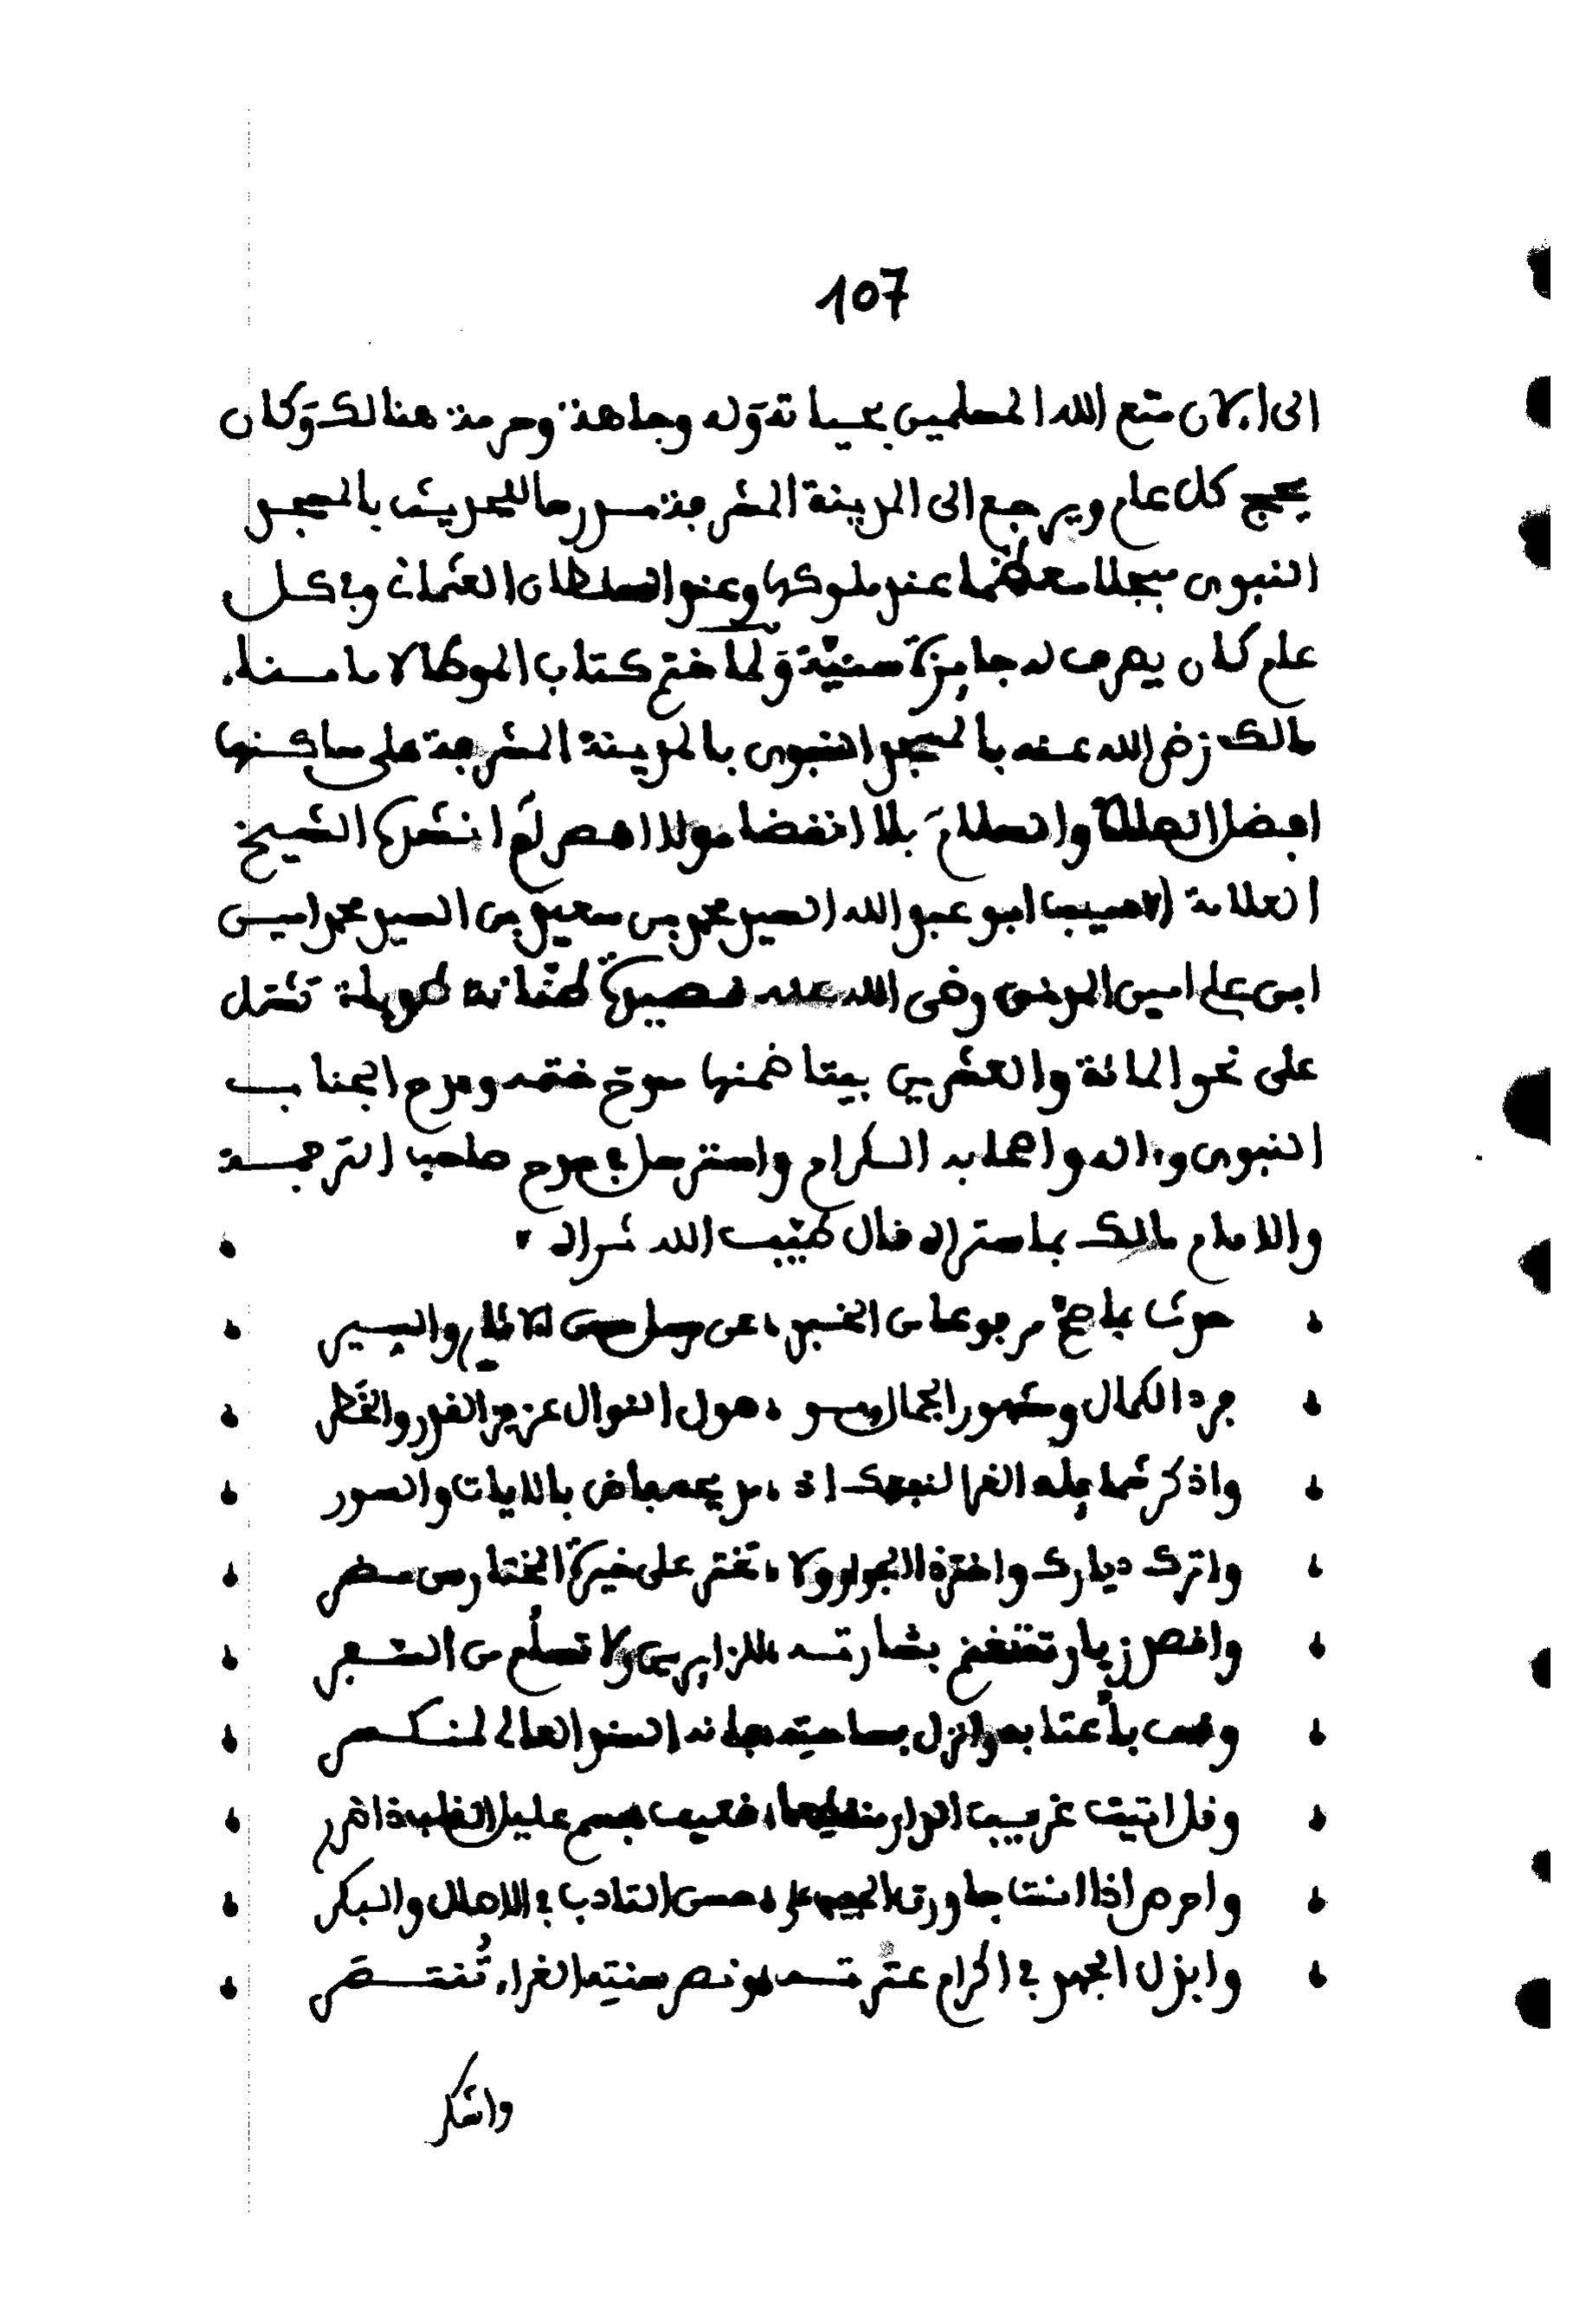 107
الى الان متع الله المسلمين بحياته وله وجاهة وحرمة هنالك وكان
يحج كل عام ويرجع الى المدينة المشرفة مدرسا للحديث بالمسجد
النبوي مبجلا معظما عند ملوكها وعند السلطان العثماني وفي كل
عام كان يصرف له جايزة سنية ولما ختم كتاب الموطا لامامنا
مالك رضي الله عنه بالمسجد النبوي بالمدينة المشرفة على ساكنها
افضل الصلاة والسلام بلا انقضا ولا انشدها الشيخ
العلامة الاديب ابو عبد الله السيد محمد بن سعيد بن السيد محمد امين
ابن علي امين المدني رضي الله عنه قصيدة طنانة طويلة تشتمل
على نحو المائة والعشرين بيتا ضمنها مدح ختمه ومدح الجناب
النبوي وءاله واصحابه الكرام واسترسل في مدح صاحب الترجمة
والامام مالك بما ستراه قال طيب الله ثراه
حدث بما صح مرفوعا من الخبر عن والسير
فرد الكمال ومشهور الجمال عزيز القدر والخطر
واذكر شمايله الغرا بالايات والسور
واترك ديارك واختر ذا الجوار ولا تختر على خيرة المختار من مضر
واقصد زيارته تغنم بشارته للزايرين ولا تسأم من السفر
وقف بأعتابه وانزل بساحته فانه السند العالي لمنكسر
وقل اتيت غريب الدار ضعيف جسم عليل القلب ذا ضرر
واحرص اذا انت جاورت حسن التادب في الاصال والبكر
وابذل الجهد في اكرام عترته ونصر سنته الغراء تنتصر
واشكر